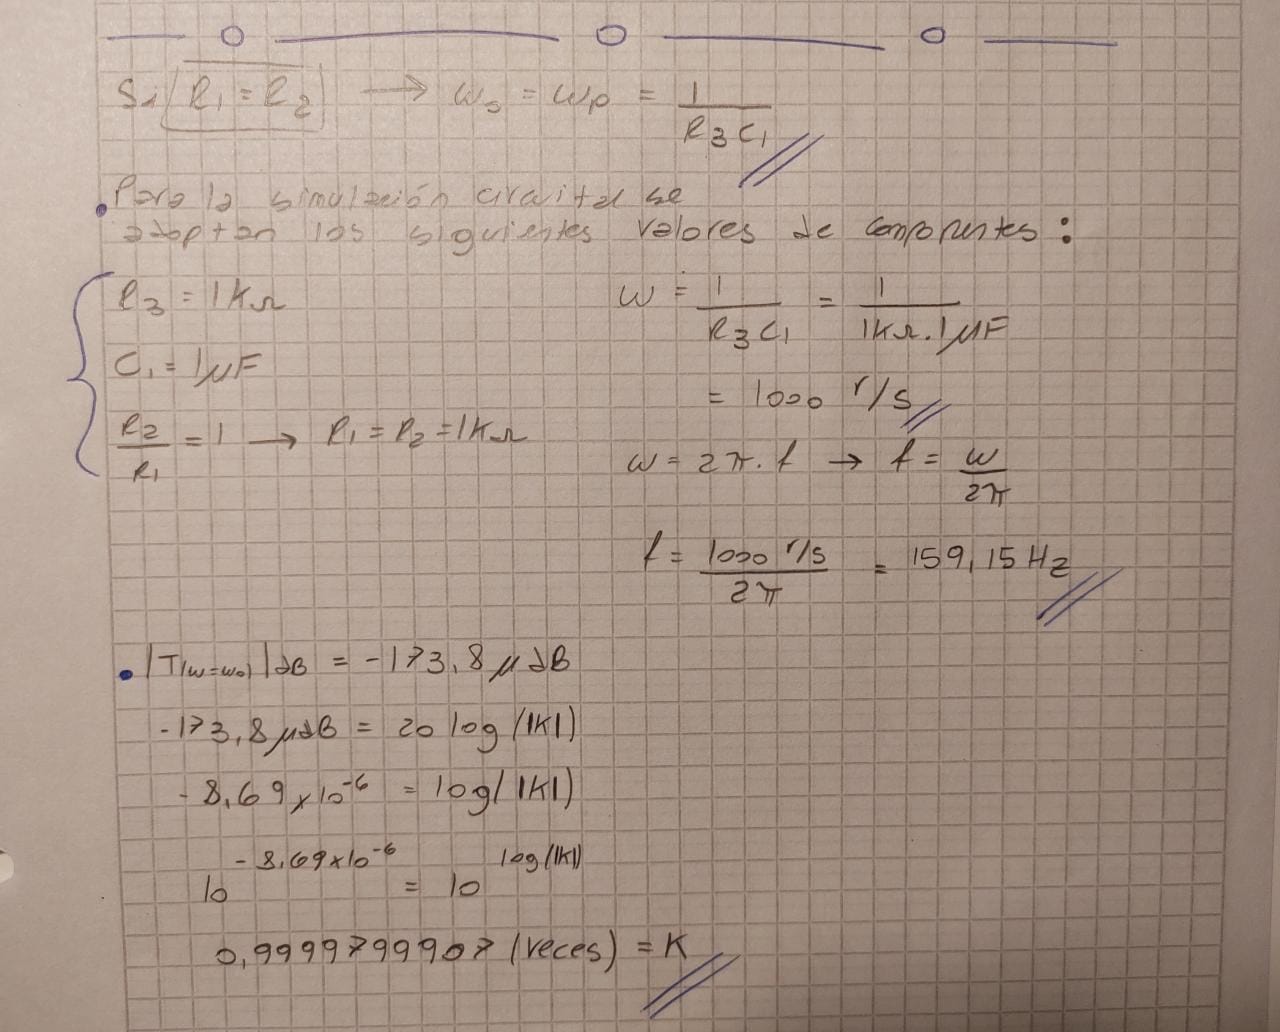 Si R₁ = R₂ → ω₀ = ωp = 1/(R₃C₁)
Para la simulación circuital se
adoptan los siguientes valores de componentes:
R₃ = 1KΩ
C₁ = 1μF
R₂/R₁ = 1 → R₁ = R₂ = 1KΩ
ω = 1/(R₃C₁) = 1/(1KΩ.1μF)
= 1000 r/s
ω = 2π.f → f = ω/2π
f = 1000 r/s / 2π = 159,15 Hz
|T(ω=ω₀)|dB = -173,8 μdB
-173,8 μdB = 20 log(|K|)
-8,69x10⁻⁶ = log(|K|)
10^(-8,69x10⁻⁶) = 10^(log(|K|))
0,9999799907 (veces) = K